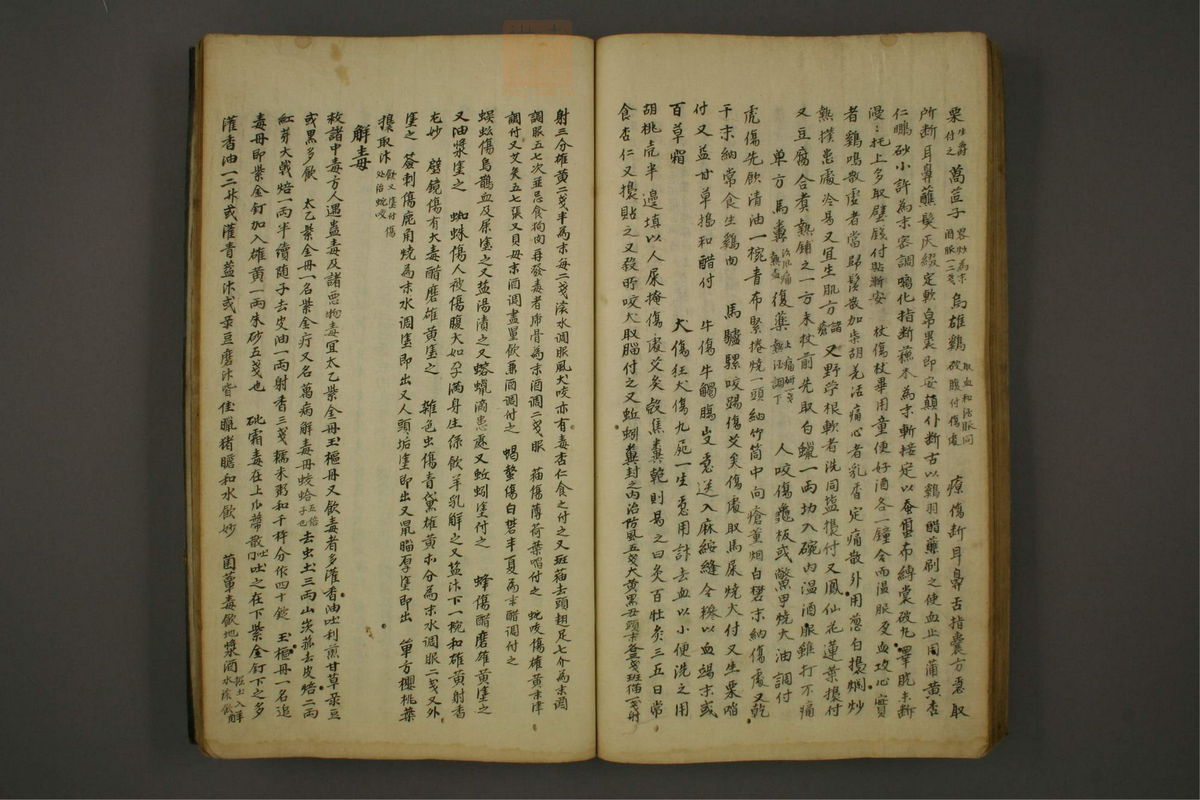 栗 生嚼付之 萵苣子 畧炒為末酒服二三戔 烏雄鷄 取血和酒服同破腹付傷處 療傷斷耳鼻舌指囊方急取
所斷耳鼻蘸髮灰綴定軟帛裹即安顛仆斷舌以鷄羽醋蘸刷之使血止用蒲黃杏
仁鵬砂小許為末蜜調噙化指斷蘇木為末斬接定以蚕繭布縛裳破凡睪脫末斷
漫〻托上多取壁錢付貼斷安 杖傷杖畢用童便好酒各一鐘合而溫服免血攻心實
者鷄鳴散虛者當歸鬚散加柴胡羌活痛心者乳香定痛散外用葱白搗爛炒
熱撲患處冷易又宜生肌方 諸瘡 又野苧根軟者洗同塩搗付又鳳仙花蓮葉搗付
又豆腐合煑熱鋪之一方未杖前先取白蠟一兩切入碗內溫酒服雖打不痛
單方馬糞 治肌痛熱盦 復藥 上痛研一戔熱酒調下 人咬傷龜板或鱉甲燒大油調付
虎傷先飮清油一椀青布緊捲燒一頭納竹筒中向瘡薰烟白礬末納傷處又乾
干末納常食生鷄肉 馬驢騾咬踢傷艾灸傷處取馬尿燒大付又生栗噙
付又益甘草搗和醋付 牛傷牛觸腸出急送入麻絲縫合糝以血竭末或
百草霜 犬傷狂犬傷九死一生急用討去血以小便洗之用
胡桃壳半邊填以人尿掩傷處艾灸殼焦糞乾則易之曰灸百壯灸三五日常
食杏仁又搗貼之又殺所咬犬取腦付之又蚯蚓糞封之內治防風五戔大黃黑丑頭末各三戔班猫一戔射
射三分雄黃二戔半為末每二戔滾水調服風犬咬亦有毒杏仁食之付之又班猫去頭翅足七介為末酒
調服五七次並忌食狗肉再發毒者虎骨為末酒調二戔服 猫傷薄荷葉噙付之 蛇咬傷雄黃末津
調付又艾灸五七張又貝母末酒調盡量飮兼酒調付之 蝎螫傷白礬半夏為末醋調付之
蜈蚣傷烏鷄血及屎塗之又盐湯漬之又熔蠟滴患處又蚯蚓塗付之 蜂傷醋磨雄黃塗之
又油漿塗之 蜘蛛傷人被傷腹大如孕滿身生絲飮羊乳解之又藍汁下一椀和雄黃射香
尤妙 壁鏡傷有大毒醋磨雄黃塗之 雜色虫傷青黛雄黃等分為末水調服二戔又外
塗之 簽刺傷鹿角燒為末水調塗即出又人頭垢塗即出又鼠腦厚塗即出 單方櫻桃葉
搗取汁 飮又塗付傷處治蛇咬
解毒
救諸中毒方人遇蠱毒及諸惡物毒宜太乙紫金丹玉樞丹又飮毒者多灌香油吐利煎甘草菉豆
或黑多飮 太乙紫金丹一名紫金疔又名萬病解毒丹蚊蛤 五倍子也 去虫土三兩山茨菰去皮焙二兩
紅芽大戟焙一兩半續随子去皮油一兩射香三戔糯米粥和千杵分作四十錠 玉樞丹一名追
毒丹即紫金釘加入雄黃一兩朱砂五戔也 砒霜毒在上瓜蔕散 吐門 吐之在下紫金釘下之多
灌香油一二升或灌青藍汁或菉豆磨汁皆佳臘猪膽和水飮妙 菌蕈毒飮地漿酒 掘土入水滾飮 解